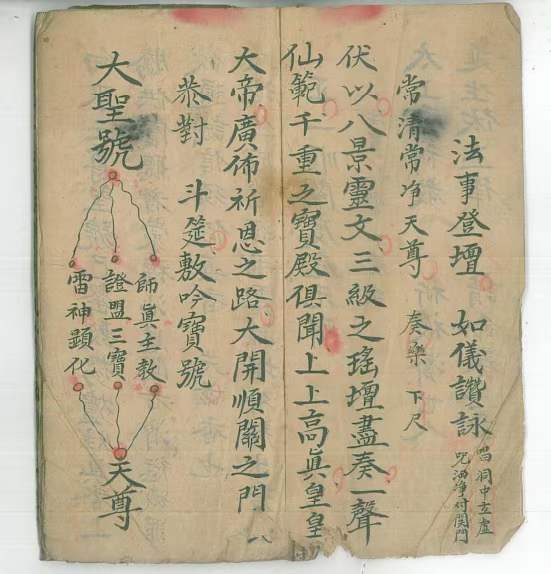 法事登壇　如儀讚詠
洞中玄虛
咒　淨　関門
常清常净天尊　奏樂　下尺
伏以八景靈文三級之瑤壇盡奏一聲
仙範千重之寶殿俱聞上上高真皇皇
大帝廣佈祈恩之路大開順關之門
恭對　斗筵敷吟寶號
大聖號
師真主教
證盟三寶
雷神顕化
天尊